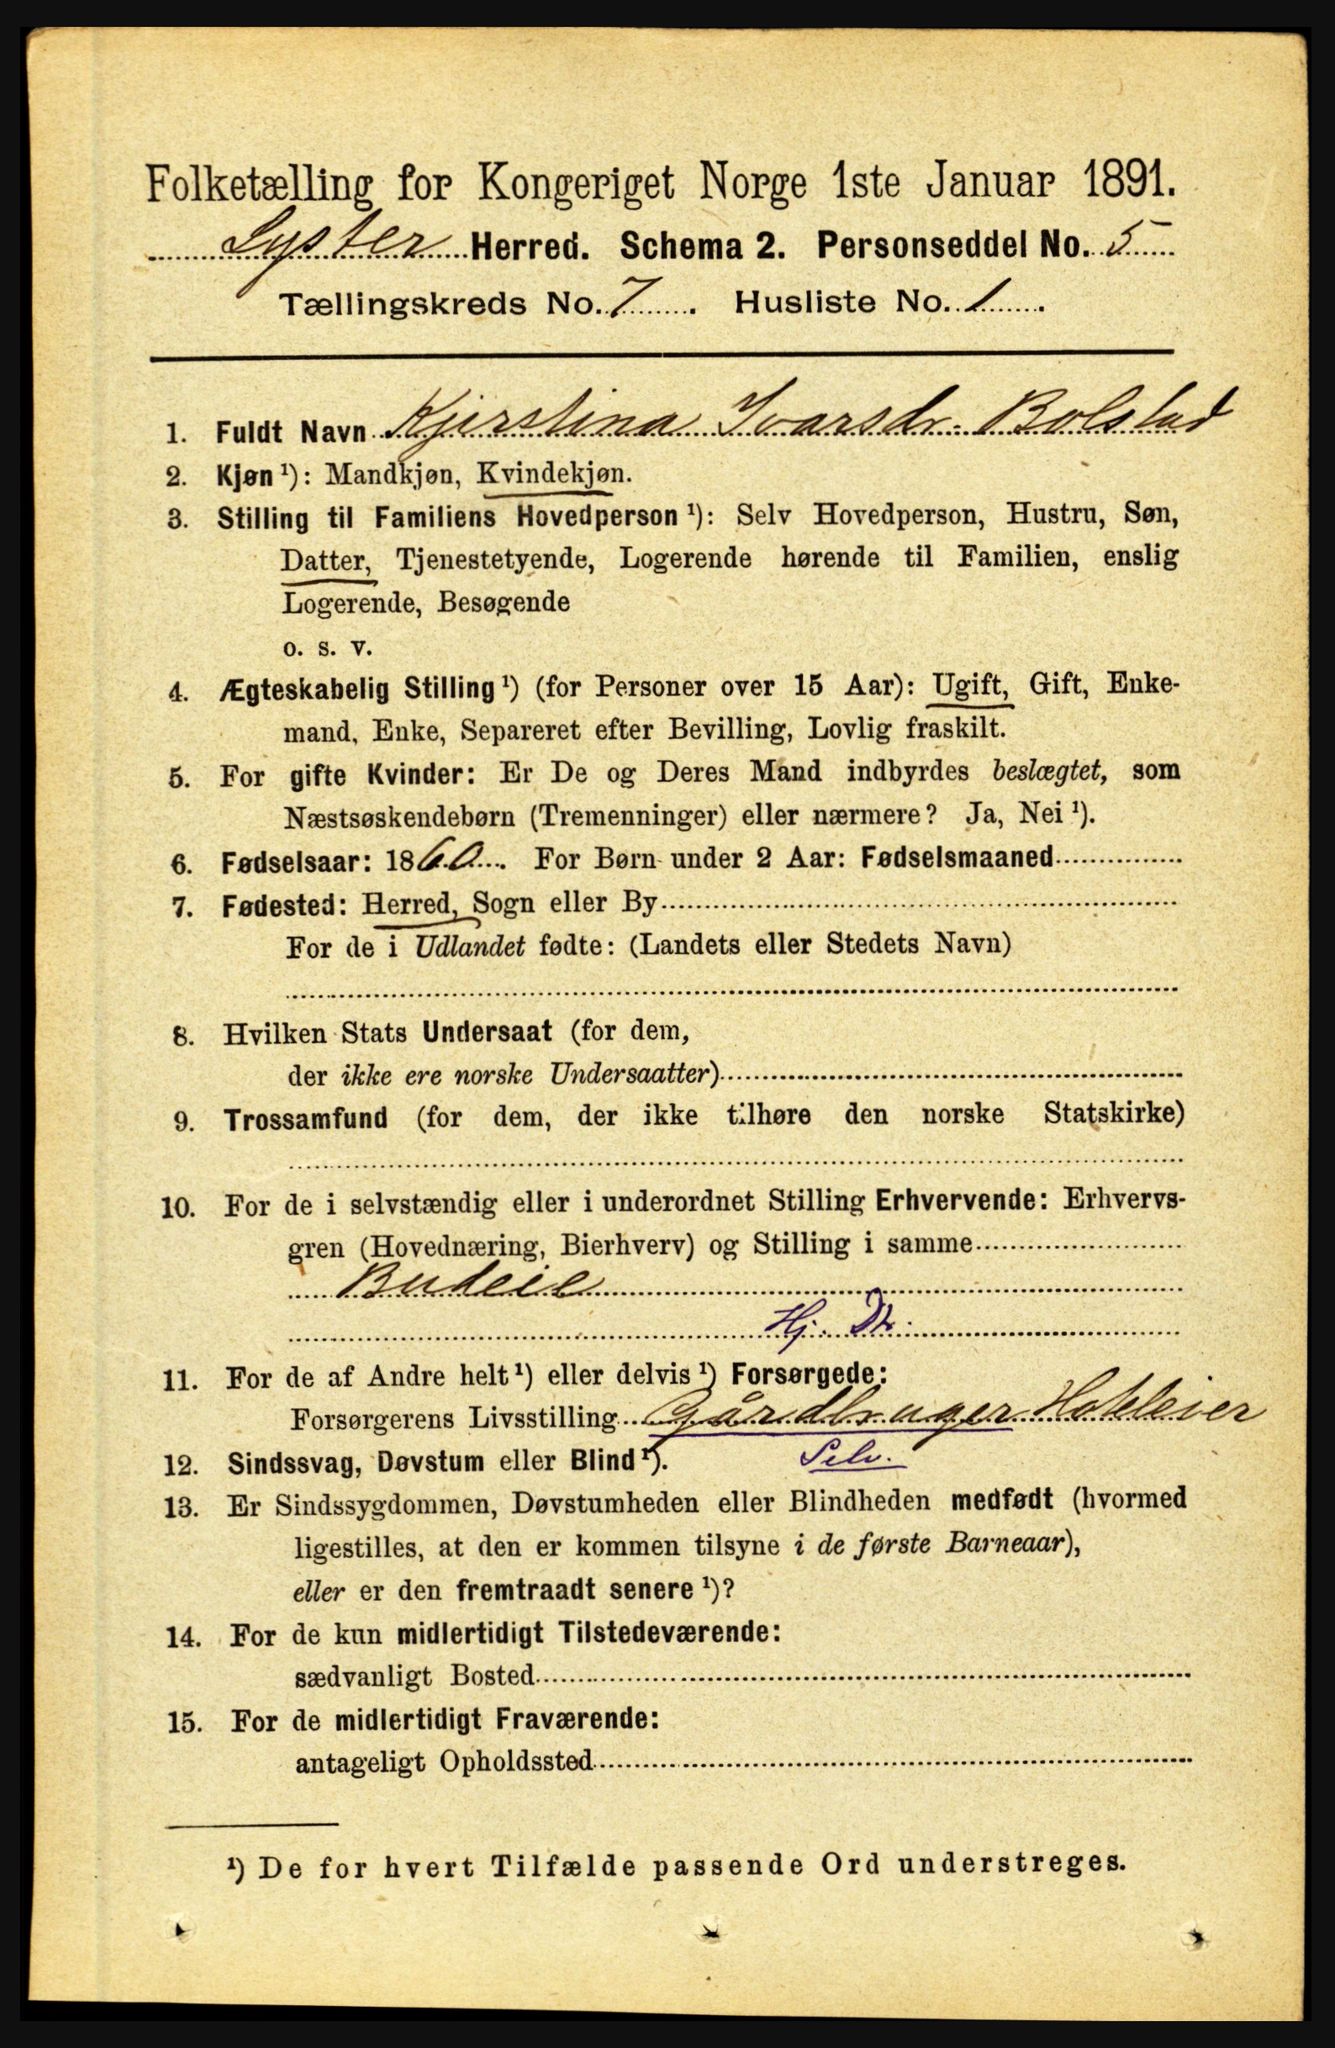 Folketælling for Kongeriget Norge 1ste Januar 1891.
Lyster Herred. Schema 2. Personseddel No. 5
Tællingskreds No. 7. Husliste No. 1.
1. Fuldt Navn Kjerstina Ivarsdr. Bolstad
2. Kjøn ¹): Mandkjøn, Kvindekjøn.
3. Stilling til Familiens Hovedperson ¹): Selv Hovedperson, Hustru, Søn,
Datter, Tjenestetyende, Logerende hørende til Familien, enslig
Logerende, Besøgende
o. s. v.
4. Ægteskabelig Stilling ¹) (for Personer over 15 Aar): Ugift, Gift, Enke-
mand, Enke, Separeret efter Bevilling, Lovlig fraskilt.
5. For gifte Kvinder: Er De og Deres Mand indbyrdes beslægtet, som
Næstsøskendebørn (Tremenninger) eller nærmere? Ja, Nei ¹).
6. Fødselsaar: 1860. For Børn under 2 Aar: Fødselsmaaned
7. Fødested: Herred, Sogn eller By
For de i Udlandet fødte: (Landets eller Stedets Navn)
8. Hvilken Stats Undersaat (for dem,
der ikke ere norske Undersaatter)
9. Trossamfund (for dem, der ikke tilhøre den norske Statskirke)
10. For de i selvstændig eller i underordnet Stilling Erhvervende: Erhvervs-
gren (Hovednæring, Bierhverv) og Stilling i samme
Budeie
Hj. Dtr.
11. For de af Andre helt ¹) eller delvis ¹) Forsørgede:
Forsørgerens Livsstilling Gårdbruger Hoteleier
12. Sindssvag, Døvstum eller Blind ¹). Selv.
13. Er Sindssygdommen, Døvstumheden eller Blindheden medfødt (hvormed
ligestilles, at den er kommen tilsyne i de første Barneaar),
eller er den fremtraadt senere ¹)?
14. For de kun midlertidigt Tilstedeværende:
sædvanligt Bosted
15. For de midlertidigt Fraværende:
antageligt Opholdssted
¹) De for hvert Tilfælde passende Ord understreges.